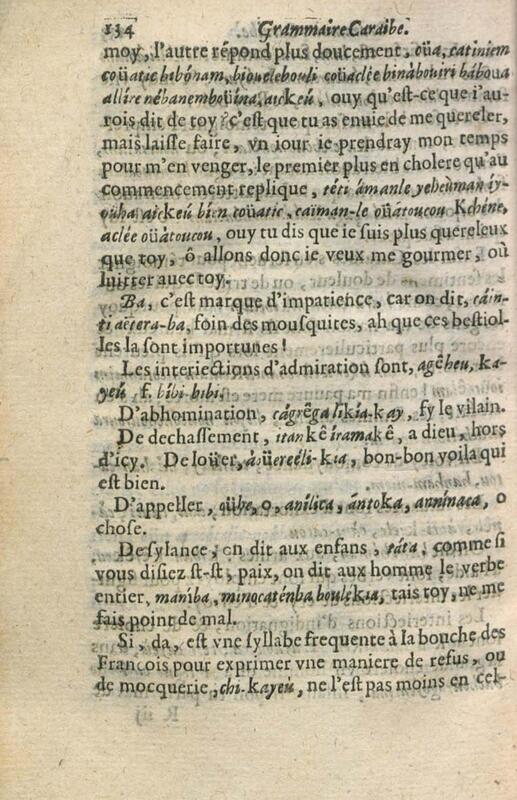 134 Grammaire Caraibe.
moy, l'autre répond plus doucement, oüa, catiniem
coüatic bibónam, biouelebouli coüaclée binàbouiri báboua
allíre nébanemboüina, aickeú, ouy qu'est-ce que i'au-
rois dit de toy? c'est que tu as enuie de me quereler,
mais laisse faire, vn iour ie prendray mon temps
pour m'en venger, le premier plus en cholere qu'au
commencement replique, téti ámanle yeheúman íy-
oüha, aickeú bien coüatic, caíman-le oüàtoucou Kchéne,
aclée oüàtoucou, ouy tu dis que ie suis plus quereleux
que toy, ô allons donc ie veux me gourmer, où
luitter auec toy.
Ba, c'est marque d'impatience, car on dit, cáin-
ti aétera-ba, foin des mousquites, ah que ces bestiol-
les la sont importunes!
Les interiections d'admiration sont, agêheu, ka-
yeú, f. bibi-bibi.
D'abhomination, cágrêgalikia-kay, fy le vilain.
De dechassement, itankêíramakê, a dieu, hors
d'içy. De loüer, áoüereéli-kia, bon-bon voila qui
est bien.
D'appeller, oühe, o, anílica, ántoka, anninaca, o
chose.
De sylance, en dit aux enfans, táta, comme si
vous disiez st-st, paix, on dit aux homme le verbe
entier, maníba, minocaténba boulêkia, tais toy, ne me
fais point de mal.
Si, da, est vne syllabe frequente à la bouche des
François pour exprimer vne maniere de refus, ou
de mocquerie, chi-kayeú, ne l'est pas moins en cel-